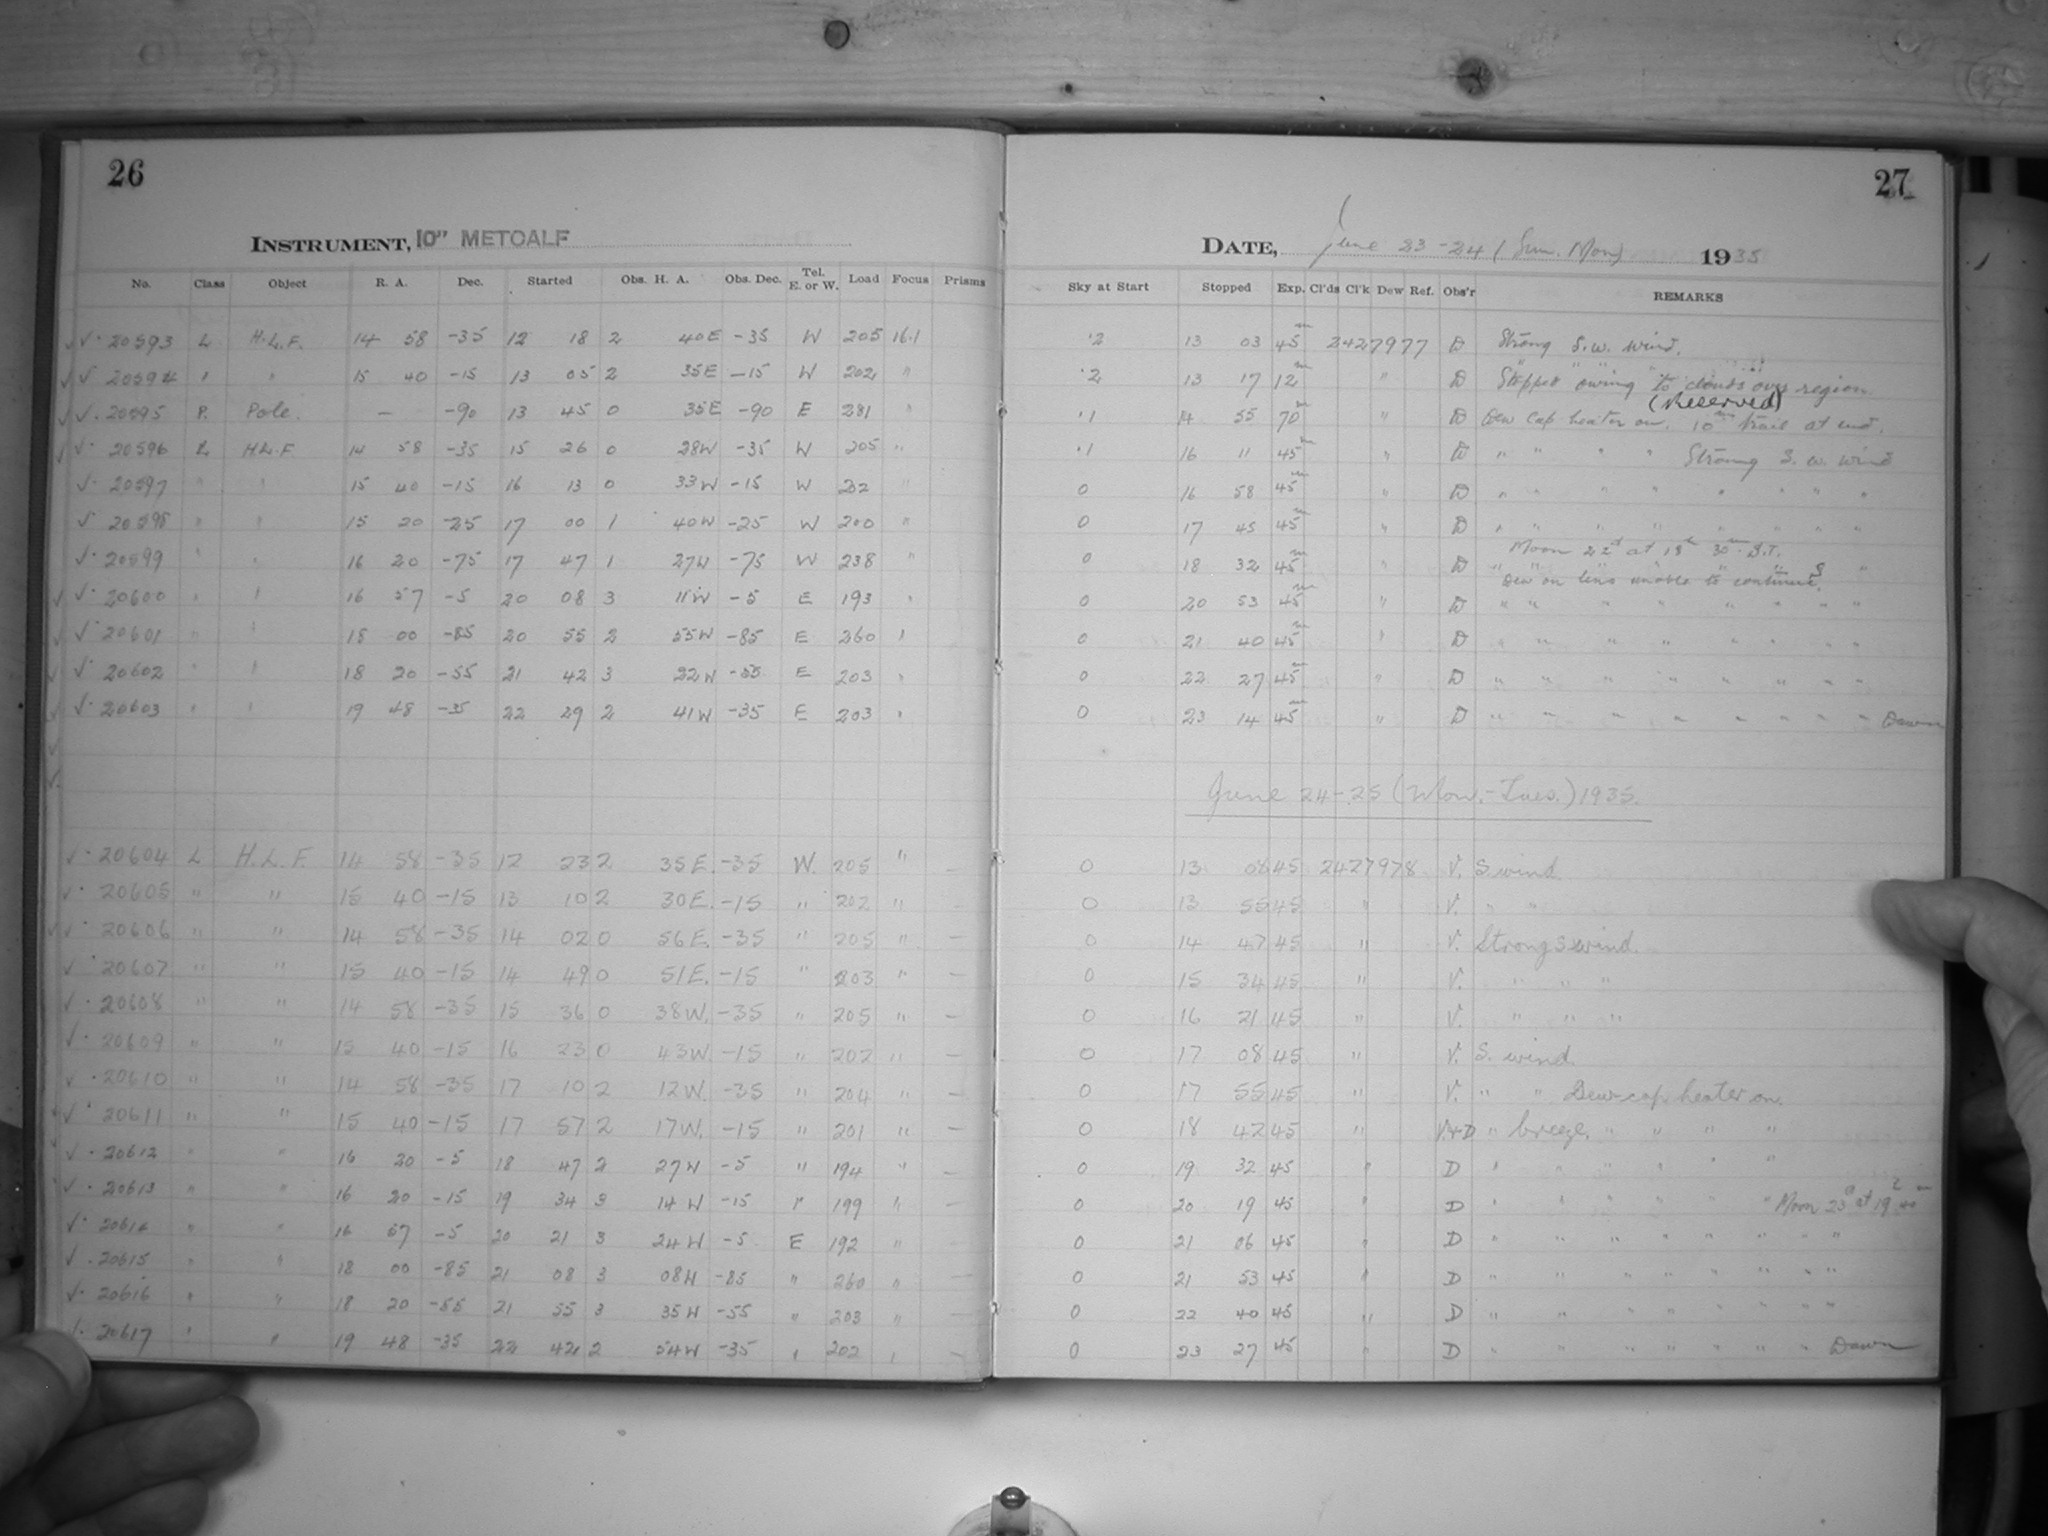 26
27
INSTRUMENT, 10" METCALF
DATE, June 23-24 (Sun. Mon) 1935
No. Class Object R. A. Dec. Started Obs. H. A. Obs. Dec. Tel. E. or W. Load Focus Prisms Sky at Start Stopped Exp. Cl'ds Cl'k Dew Ref. Obs'r REMARKS
√· 20593 L H.L.F. 14 58 -35 12 18 2 40E -35 W 205 16.1 ·2 13 03 45m 2427977 D Strong S.W. wind.
√ 20594 " " 15 40 -15 13 05 2 35E -15 W 202 " ·2 13 17 12m " D Stopped owing to clouds over region
(Reserved)
√. 20595 P. Pole. — -90 13 45 0 35E -90 E 281 " ·1 14 55 70m " D Dew Cap heater on. 10m trail at end.
√· 20596 L H.L.F. 14 58 -35 15 26 0 28W -35 W 205 " ·1 16 11 45m " D " " " " Strong S. W. wind
√· 20597 " " 15 40 -15 16 13 0 33W -15 W 202 " 0 16 58 45m " D " " " " " " " "
√ 20598 " " 15 20 -25 17 00 1 40W -25 W 200 " 0 17 45 45m " D " " " " " " " "
Moon 22d at 18h 30m S.T.
√· 20599 " " 16 20 -75 17 47 1 27W -75 W 238 " 0 18 32 45m " D " " " " " S "
Dew on lens unable to continue.
√· 20600 " " 16 57 -5 20 08 3 11W -5 E 193 " 0 20 53 45m " D " " " " " " " "
√· 20601 " " 18 00 -85 20 55 2 55W -85 E 260 " 0 21 40 45m " D " " " " " " " "
√· 20602 " " 18 20 -55 21 42 3 22W -55 E 203 " 0 22 27 45m " D " " " " " " " "
√· 20603 " " 19 48 -35 22 29 2 41W -35 E 203 " 0 23 14 45m " D " " " " " " " " Dawn
June 24-25 (Mon.-Tues.) 1935.
√· 20604 L H.L.F. 14 58 -35 12 23 2 35E. -35 W. 205 " — 0 13 08 45 2427978 V. S. wind
√· 20605 " " 15 40 -15 13 10 2 30E. -15 " 202 " — 0 13 55 45 " V. " "
√· 20606 " " 14 58 -35 14 02 0 56E. -35 " 205 " — 0 14 47 45 " V. Strong S wind.
√· 20607 " " 15 40 -15 14 49 0 51E. -15 " 203 " — 0 15 34 45 " V. " " "
√· 20608 " " 14 58 -35 15 36 0 38W. -35 " 205 " — 0 16 21 45 " V. " " "
√· 20609 " " 15 40 -15 16 23 0 43W. -15 " 202 " — 0 17 08 45 " V. S. wind
√· 20610 " " 14 58 -35 17 10 2 12W. -35 " 204 " — 0 17 55 45 " V. " " Dew cap heater on.
√· 20611 " " 15 40 -15 17 57 2 17W. -15 " 201 " — 0 18 42 45 " V.+D " breeze. " " " "
√· 20612 " " 16 20 -5 18 47 2 27W -5 " 194 " — 0 19 32 45 " D " " " " " "
√· 20613 " " 16 20 -15 19 34 3 14W -15 " 199 " — 0 20 19 45 " D " " " " " " Moon 23d at 19h 40m
√· 20614 " " 16 57 -5 20 21 3 24W -5 E 192 " — 0 21 06 45 " D " " " " " " " "
√· 20615 " " 18 00 -85 21 08 3 08W -85 " 260 " — 0 21 53 45 " D " " " " " " " "
√· 20616 " " 18 20 -55 21 55 3 35W -55 " 203 " — 0 22 40 45 " D " " " " " " " "
√· 20617 " " 19 48 -35 22 42 2 54W -35 " 202 " — 0 23 27 45 " D " " " " " " " Dawn